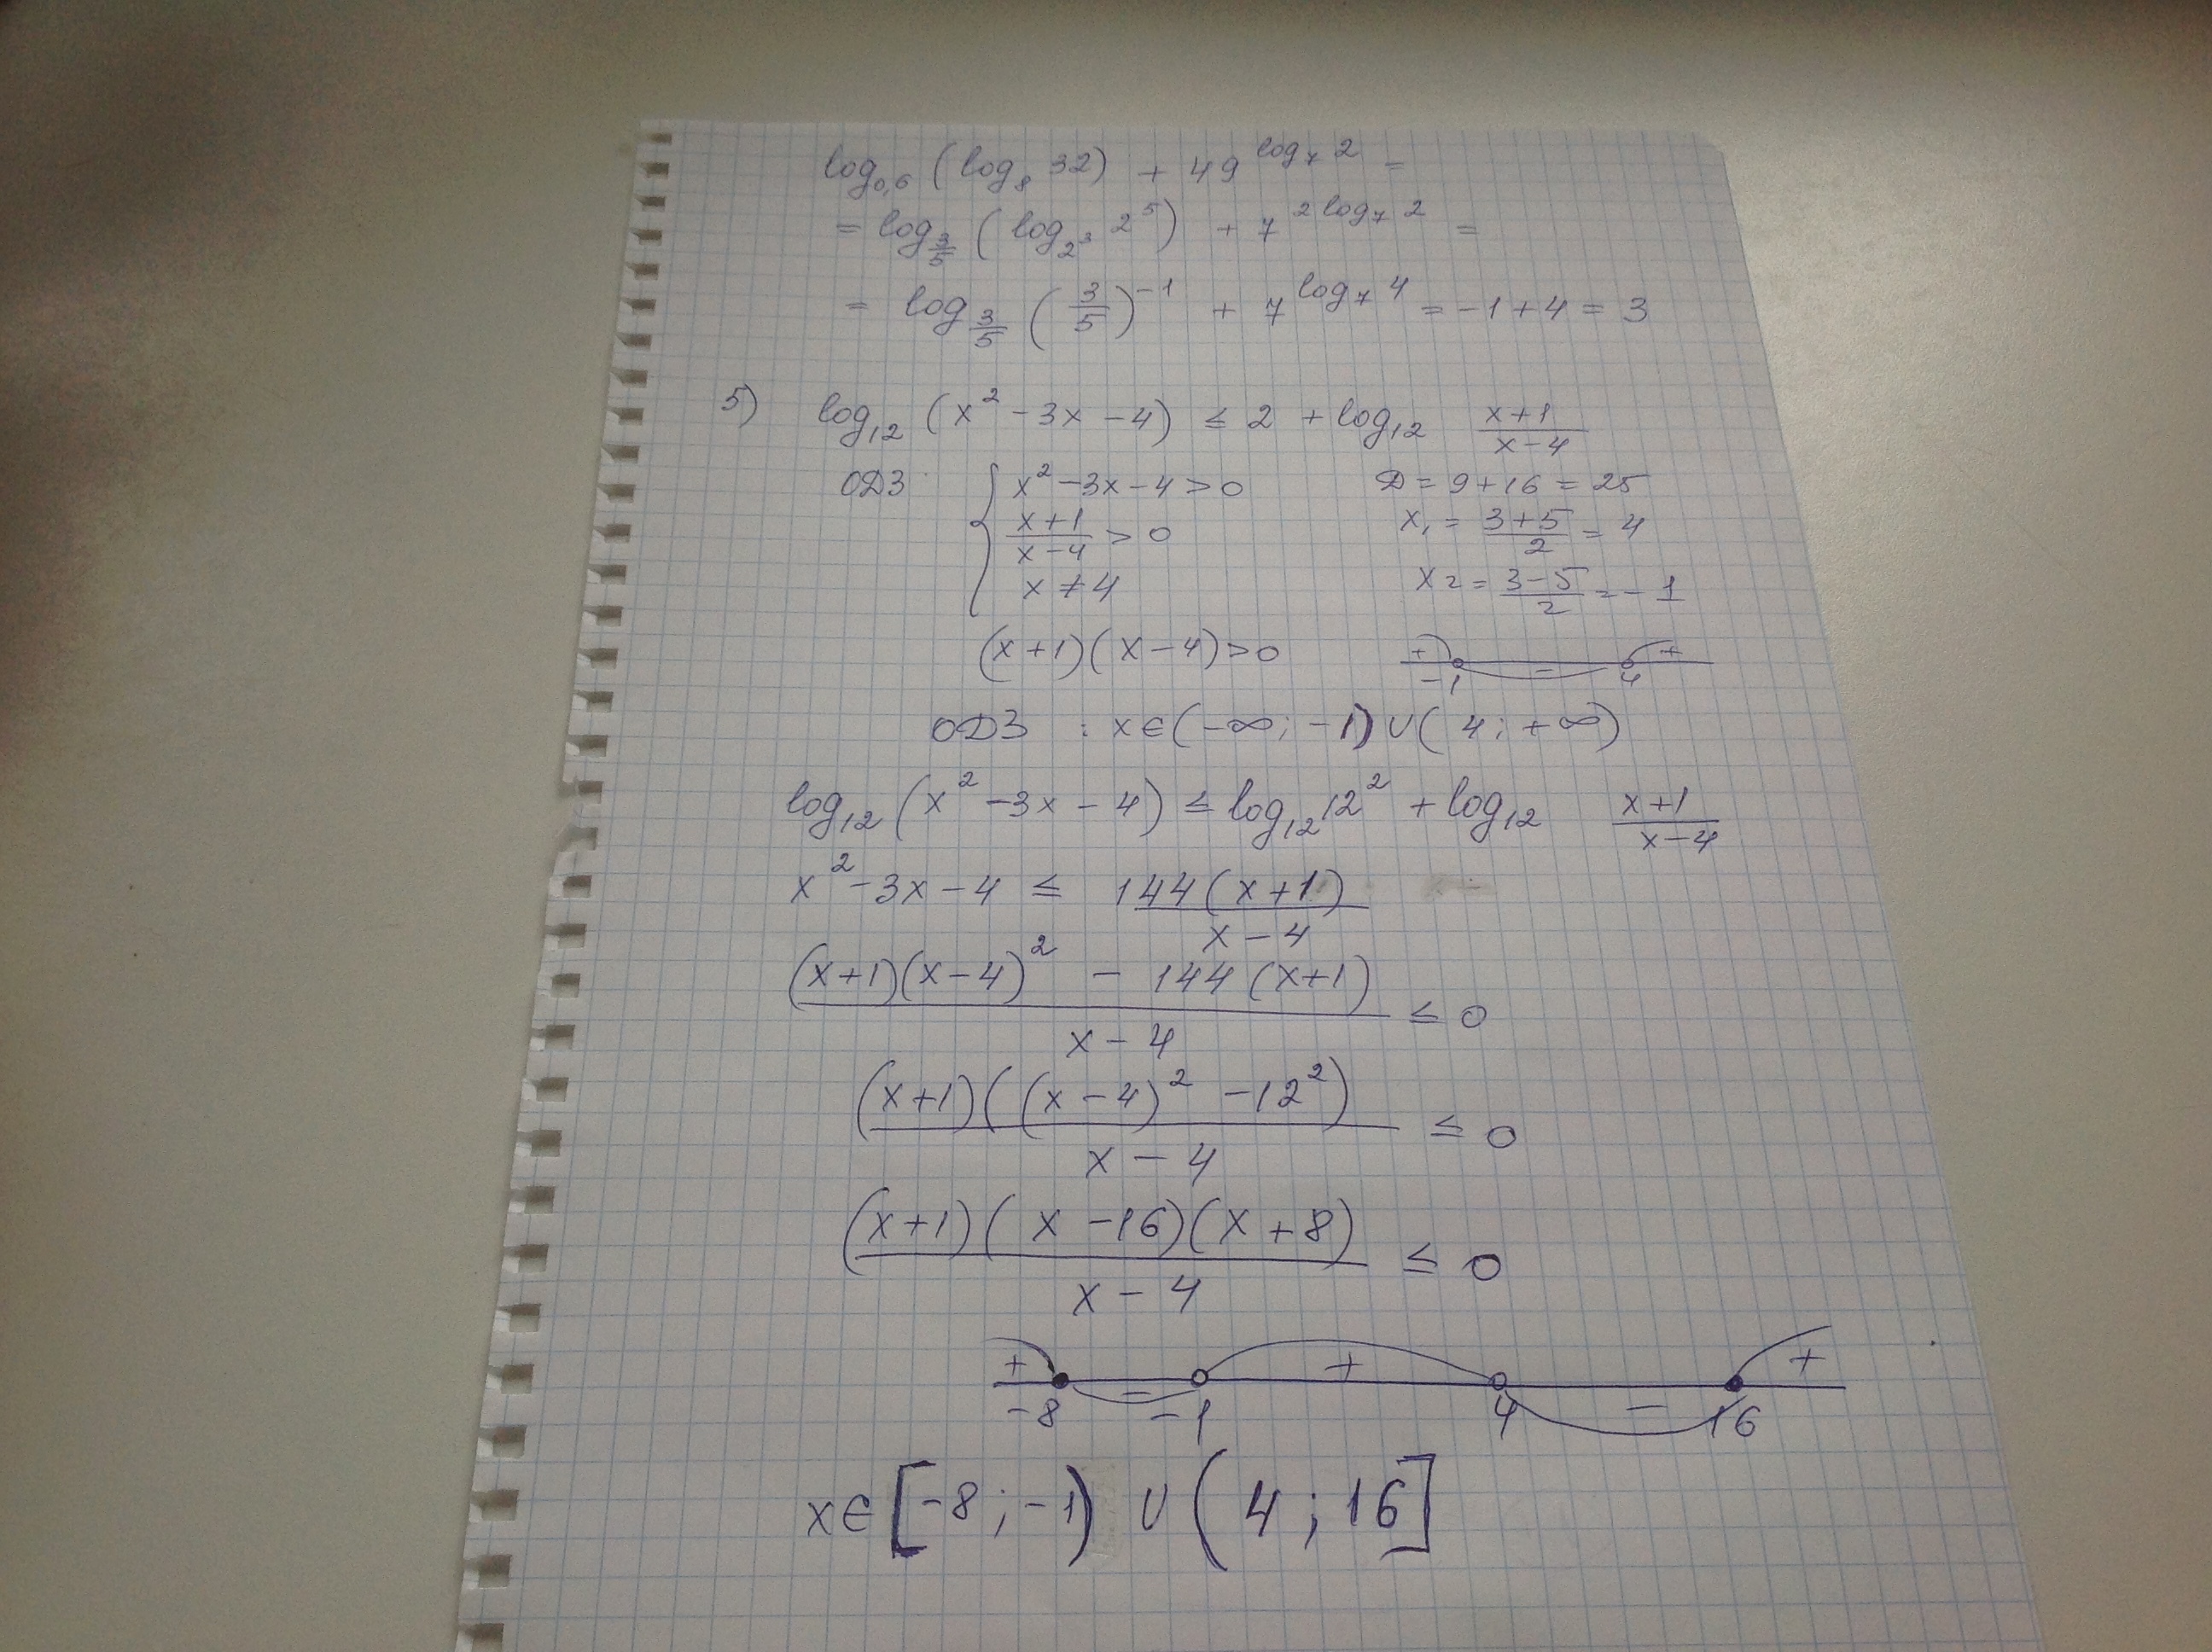 log₀,₆ (log₈ 32) + 49^(log₇ 2) =
= log_(3/5) (log_(2³) 2⁵) + 7^(2 log₇ 2) =
= log_(3/5) (3/5)⁻¹ + 7^(log₇ 4) = -1 + 4 = 3
5) log₁₂ (x² - 3x - 4) ≤ 2 + log₁₂ (x+1)/(x-4)
ОДЗ { x² - 3x - 4 > 0
(x+1)/(x-4) > 0
x ≠ 4
Д = 9 + 16 = 25
x₁ = (3+5)/2 = 4
x₂ = (3-5)/2 = -1
(x+1)(x-4) > 0
+ - +
-1 4
ОДЗ : x ∈ (-∞; -1) ∪ (4; +∞)
log₁₂ (x² - 3x - 4) ≤ log₁₂ 12² + log₁₂ (x+1)/(x-4)
x² - 3x - 4 ≤ 144(x+1)/(x-4)
((x+1)(x-4)² - 144(x+1))/(x-4) ≤ 0
(x+1)((x-4)² - 12²)/(x-4) ≤ 0
(x+1)(x-16)(x+8)/(x-4) ≤ 0
+ - + - +
-8 -1 4 16
x ∈ [-8; -1) ∪ (4; 16]